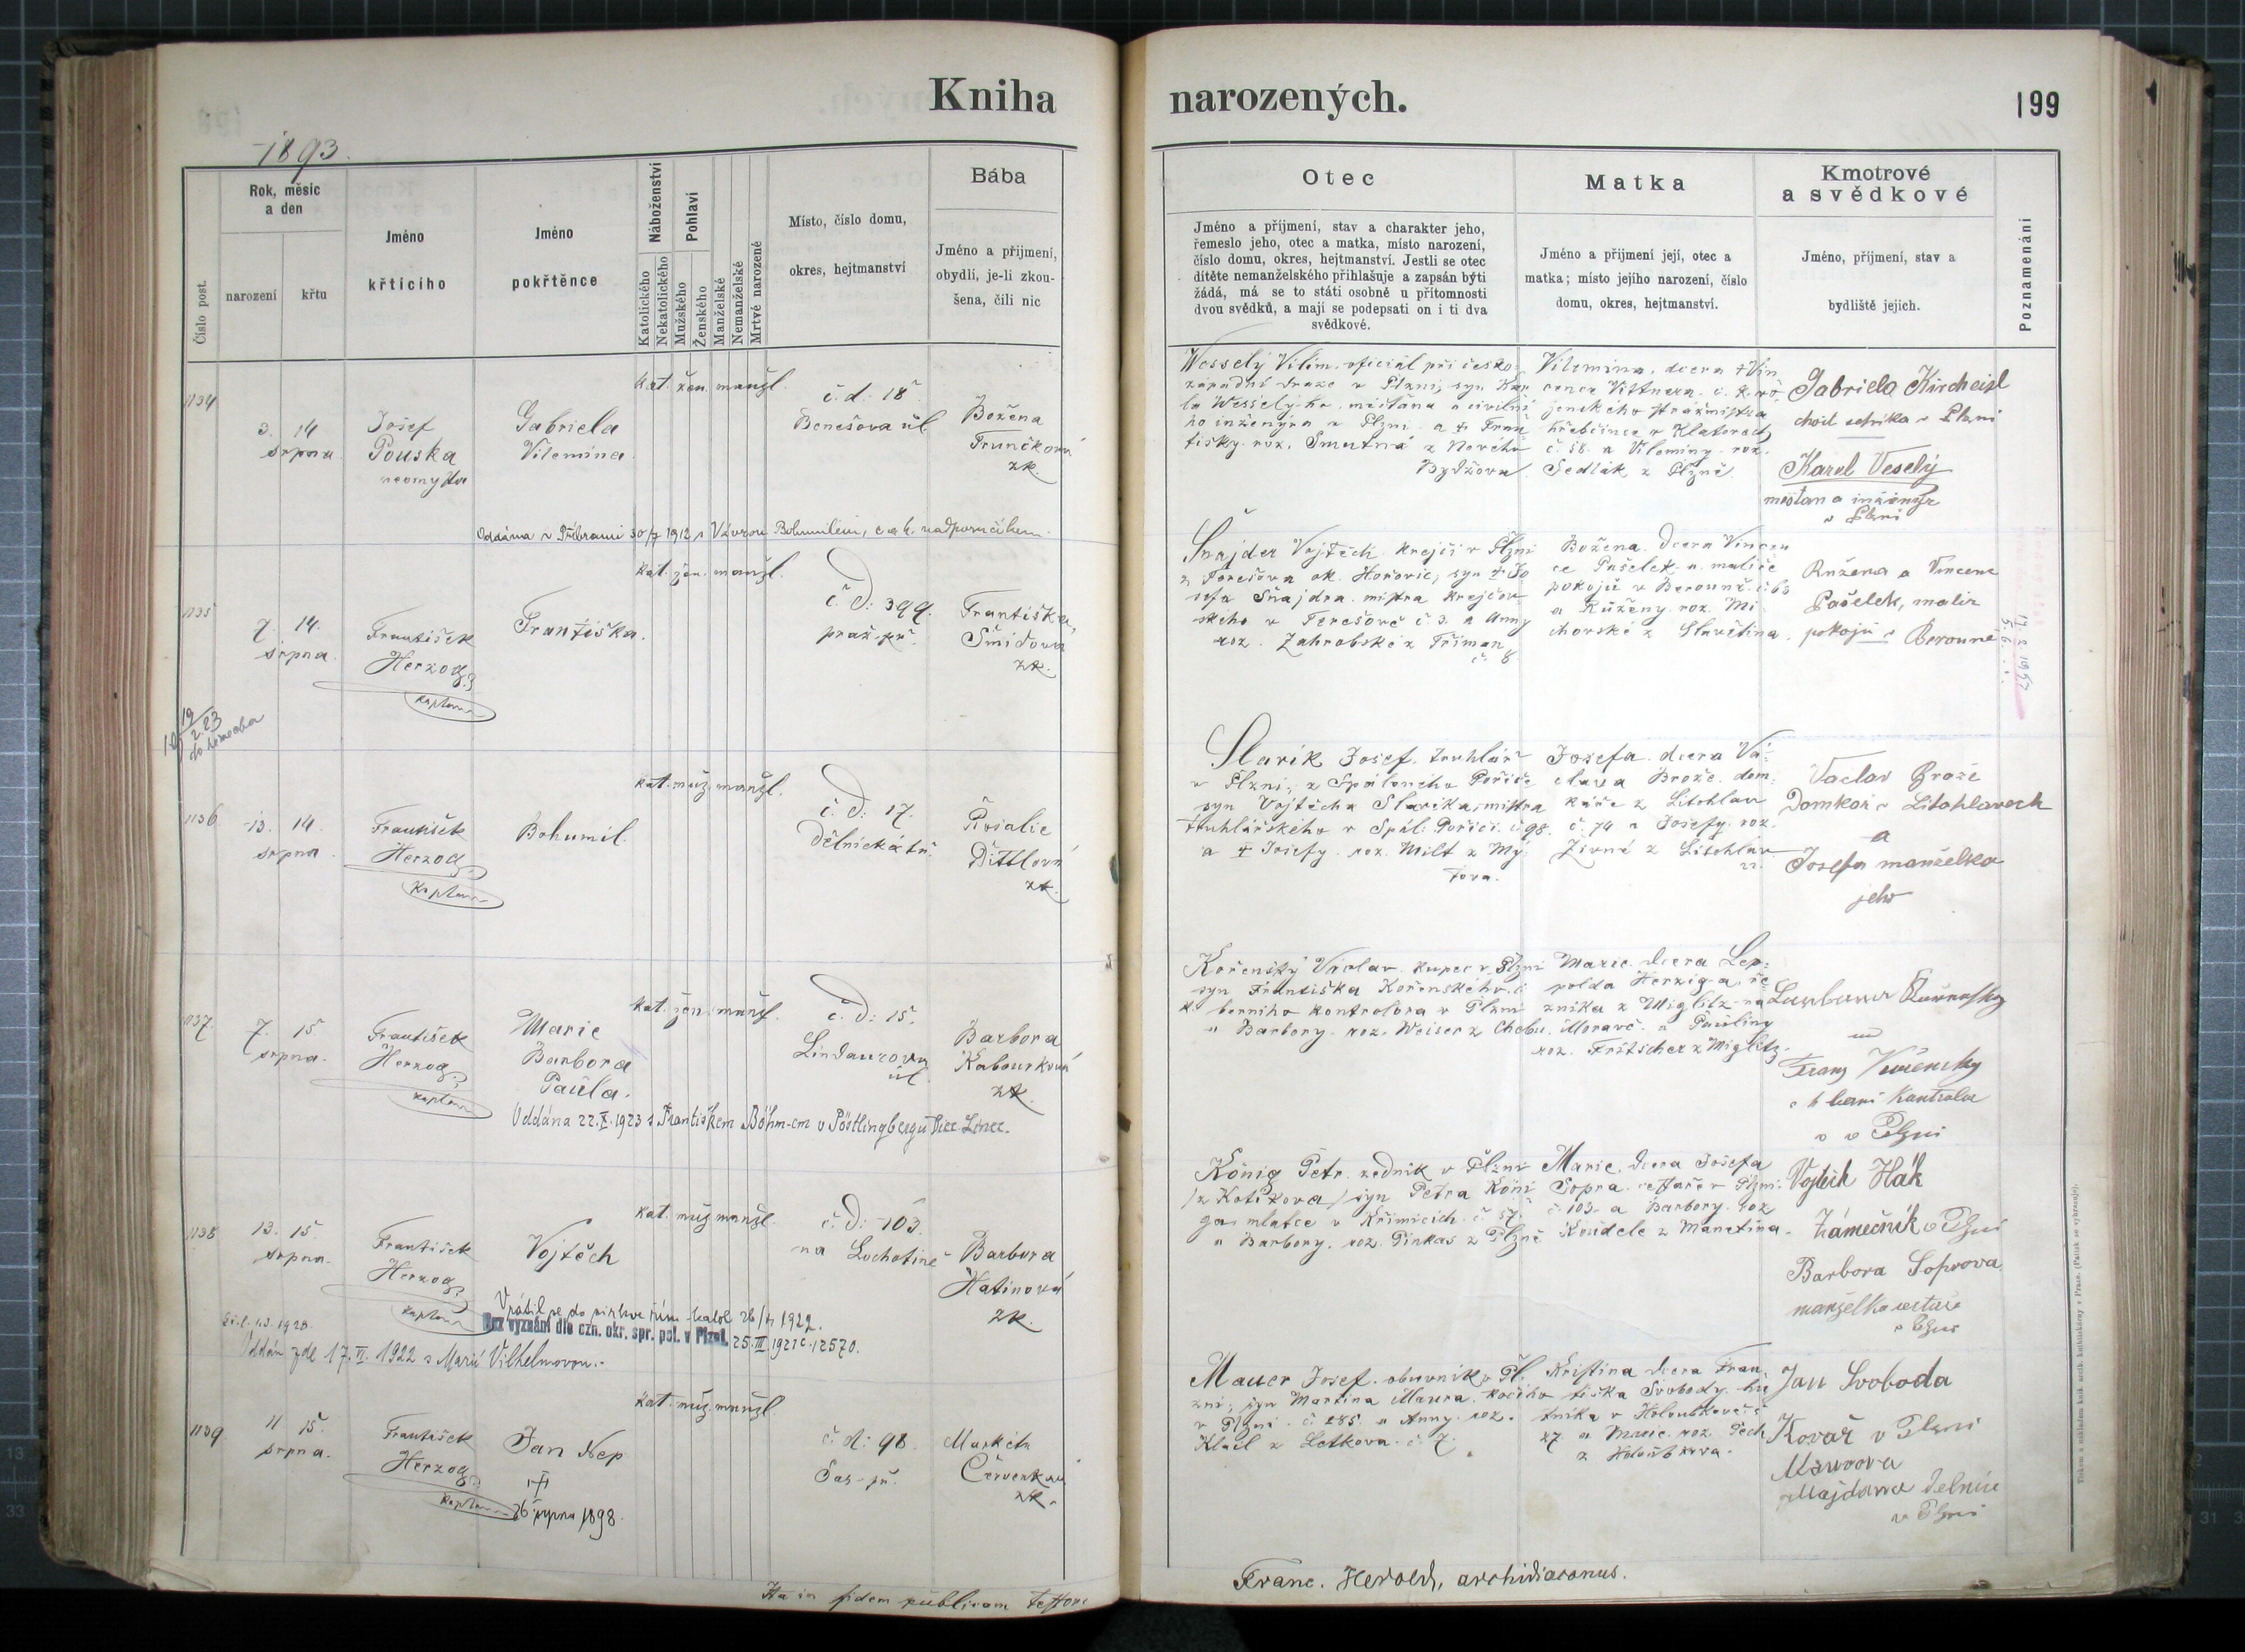 Kniha narozených.
199
1893.
Číslo post.
Rok, měsíc
a den
narození
křtu
Jméno
křticího
Jméno
pokřtěnce
Náboženství
Katolického
Nekatolického
Pohlaví
Mužského
Ženského
Manželské
Nemanželské
Mrtvé narozené
Místo, číslo domu,
okres, hejtmanství
Bába
Jméno a příjmení,
obydlí, je-li zkou-
šena, čili nic
Otec
Jméno a příjmení, stav a charakter jeho,
řemeslo jeho, otec a matka, místo narození,
číslo domu, okres, hejtmanství. Jestli se otec
dítěte nemanželského přihlašuje a zapsán býti
žádá, má se to státi osobně u přítomnosti
dvou svědků, a mají se podepsati on i ti dva
svědkové.
Matka
Jméno a příjmení její, otec a
matka; místo jejího narození, číslo
domu, okres, hejtmanství.
Kmotrové
a svědkové
Jméno, příjmení, stav a
bydliště jejich.
Poznamenání
1134
3. 14
srpna
Josef
Pouska
Gabriela
Vilemina
kat. žen. manžl.
č. d: 18
Benešova úl.
Božena
Trunečková
zk.
Wesselý Vilím, oficiál při česko
západní dráze v Plzni, syn Kar
la Wesselýho, měšťana a civilní
ho inženýra v Plzni a † Fran
tišky roz. Smutná z Nového
Bydžova
Vilemina, dcera † Vin
cence Vittnera, c. k. vo
jenského strážmistra
hřebčince v Klatovech
č. 58. a Vileminy roz.
Sedlák z Plzně.
Gabriela Kircheisl
v Plzni
Karel Veselý
měšťan a inženýr
v Plzni
Oddána v Příbrami 30/7 1912 s Vávrou Bohumilem, c. a k. nadporučíkem.
1135
7. 14.
srpna.
František
Herzog
kaplan
Františka.
kat. žen. manžl.
č. d: 399.
praž. př.
Františka
Šmídová
zk.
Šnajder Vojtěch krejčí v Plzni
z Terešova ok. Hořovic, syn † Jo
sefa Šnajdra mistra krejčov
ského v Terešově č. 3. a Anny
roz. Zahrobské z Tříman
č. 8.
Božena dcera Vincen
ce Pašelek a. malíře
pokojů v Berouně č. 63
a Růženy roz. Mi
chovské z Slavětína.
Růžena a Vincenc
Pašelek, malíř
pokojů v Berouně
1136
13. 14.
srpna
František
Herzog
kaplan
Bohumil.
kat. muž. manžl.
č. d: 17.
Dělnická tř.
Rosalie
Dittlová
zk.
Slavík Josef, truhlář
v Plzni, z Spáleného Poříčí
syn Vojtěcha Slavíka, mistra
truhlářského v Spál. Poříčí č. 98.
a † Josefy roz. Milt z Mý
tova.
Josefa dcera Vá-
clava Brože, dom-
káře z Litohlav
č. 74 a Josefy roz.
Živné z Litohlav
Václav Brože
Domkář v Litohlavech
a
Josefa manželka
jeho
1137.
7. 15
srpna.
František
Herzog
kaplan
Marie
Barbora
Paula.
kat. žen. manžl.
č. d: 15.
Lindaurova
úl.
Barbora
Kabourková
zk.
Kořenský Václav kupec v Plzni
syn Františka Kořenského c.
k. berního kontrolora v Plzni
a Barbory roz. Weiser z Chebu.
Marie dcera Leo-
polda Herziga, ře
zníka z Miglitz na
Moravě a Pauliny
roz. Fritscher z Miglitz.
Franz Kořensky
v Plzni
Oddána 22.X.1923 s Františkem Böhm-em v Pöstlingbergu
1138
13. 15
srpna.
František
Herzog
kaplan
Vojtěch
kat. muž. manžl.
č. d: 103
na Lochotíně
Barbora
Hatinová
zk.
König Petr, zedník v Plzni
(z Kotíkova) syn Petra Köni
ga mlatce v Křimicích č. 57.
a Barbory roz. Pinkas z Plzně
Marie, dcera Josefa
Sopra cestáře v Plzni
č. 103. a Barbory roz.
Koudele z Manětína.
Vojtěch Hák
Zámečník v Plzni
Barbora Soprova
manželka cestáře
v Plzni
Vrátil se do církve řím. katol. 26/4 1922.
Bez vyznání dle ozn. okr. spr. pol. v Plzni 25.III.1921 č. 12570.
Oddán zde 17.VI.1922 s Marií Vilhelmovou.
1139
11 15
srpna.
František
Herzog
kaplan
Jan Nep
†
26 srpna 1898.
kat. muž. manžl
č. d: 98.
Sas. př.
Markéta
Červenková
zk.
Mauer Josef, obuvník v Pl
zni, syn Martina Maura kočího
v Plzni č. 285 a Anny roz.
Klail z Letkova č. 7.
Kristina dcera Fran
tiška Svobody hu
tníka v Holoubkově č.
27. a Marie roz. Pech
z Holoubkova.
Jan Svoboda
Kovář v Plzni
v Plzni
Ita in fidem publicam testor
Franc. Herold, archidiaconus.